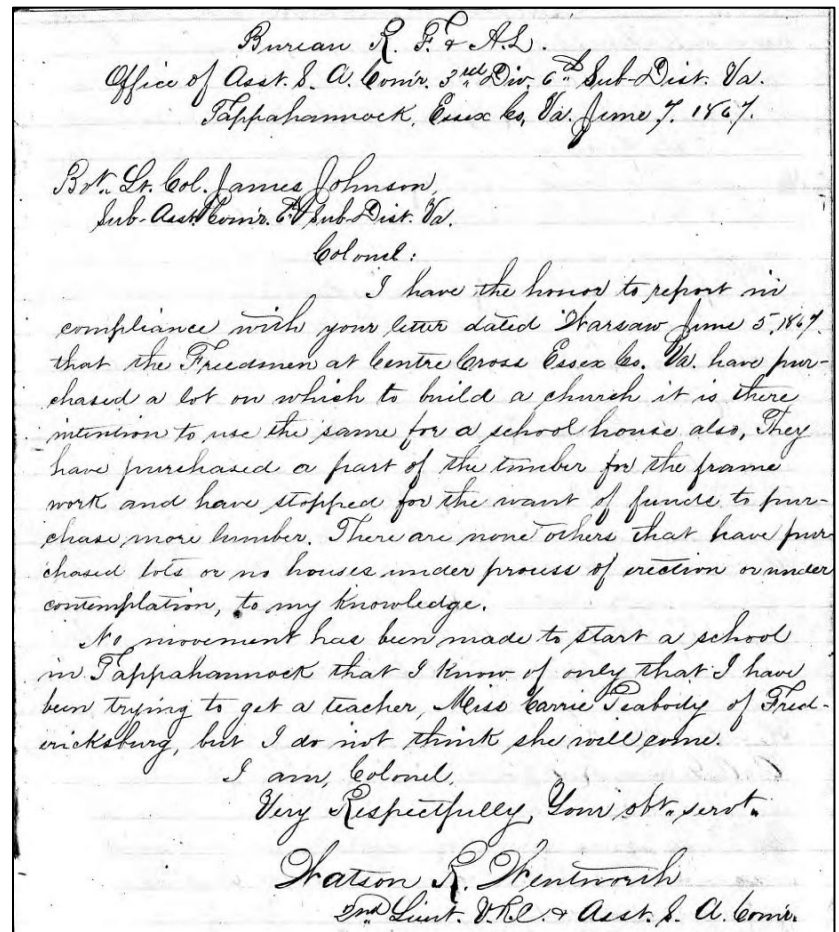 Bureau R. F. & A. L.
Office of Asst. S. A. Comr. 3rd Div. 6th Sub-Dist. Va.
Tappahannock, Essex Co, Va. June 7. 1867.
Bvt. Lt. Col. James Johnson,
Sub-Asst. Comr. 6th Sub-Dist. Va.
Colonel:
I have the honor to report in
compliance with your letter dated Warsaw June 5, 1867.
that the Freedmen at Centre Cross Essex Co. Va. have pur-
chased a lot on which to build a church it is there
intention to use the same for a school house also, They
have purchased a part of the timber for the frame
work and have stopped for the want of funds to pur-
chase more lumber. There are none others that have pur
chased lots or no houses under process of erection or under
contemplation, to my knowledge.
No movement has been made to start a school
in Tappahannock that I know of only that I have
been trying to get a teacher, Miss Carrie Peabody of Fred-
ericksburg, but I do not think she will come.
I am, Colonel,
Very Respectfully, Your obt. servt.
Watson R. Wentworth
2nd Lieut. V.R.C. & Asst. S. A. Comr.